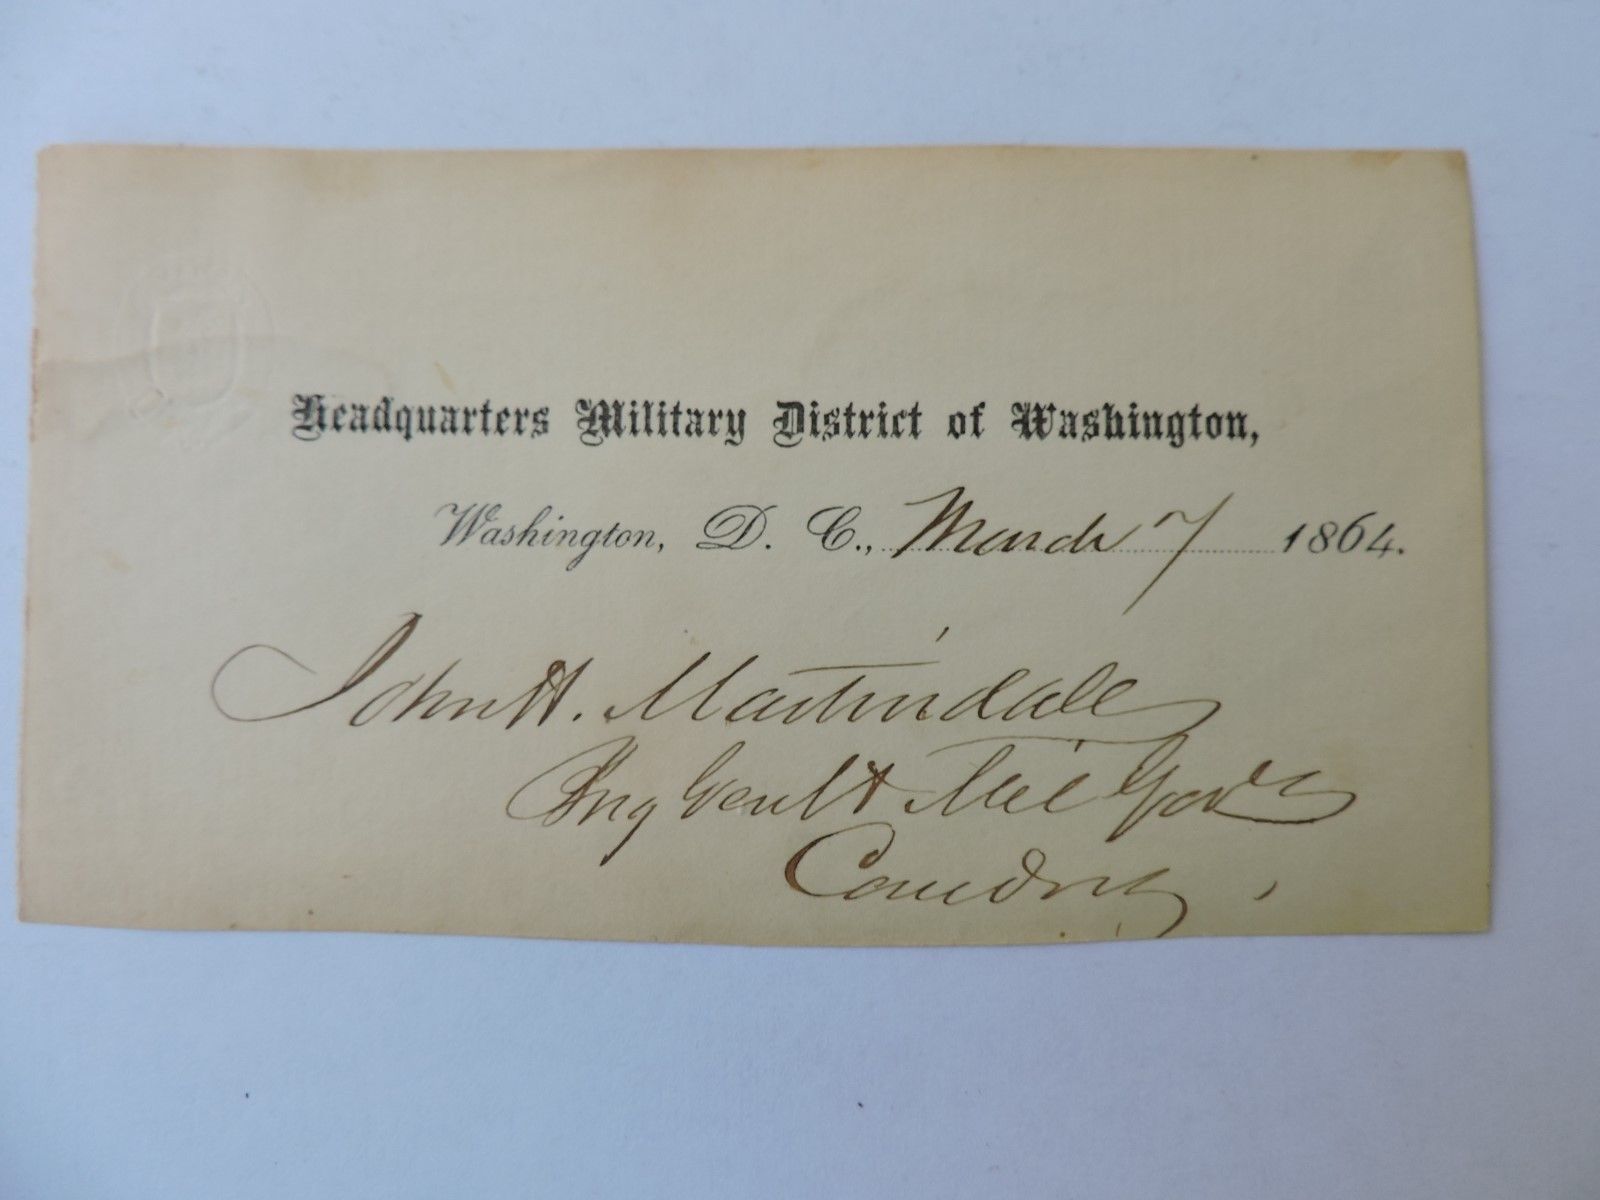 Headquarters Military District of Washington,
Washington, D. C., March 7 1864.
John H. Martindale
Brig Genl & Mil Gov
Comdng.